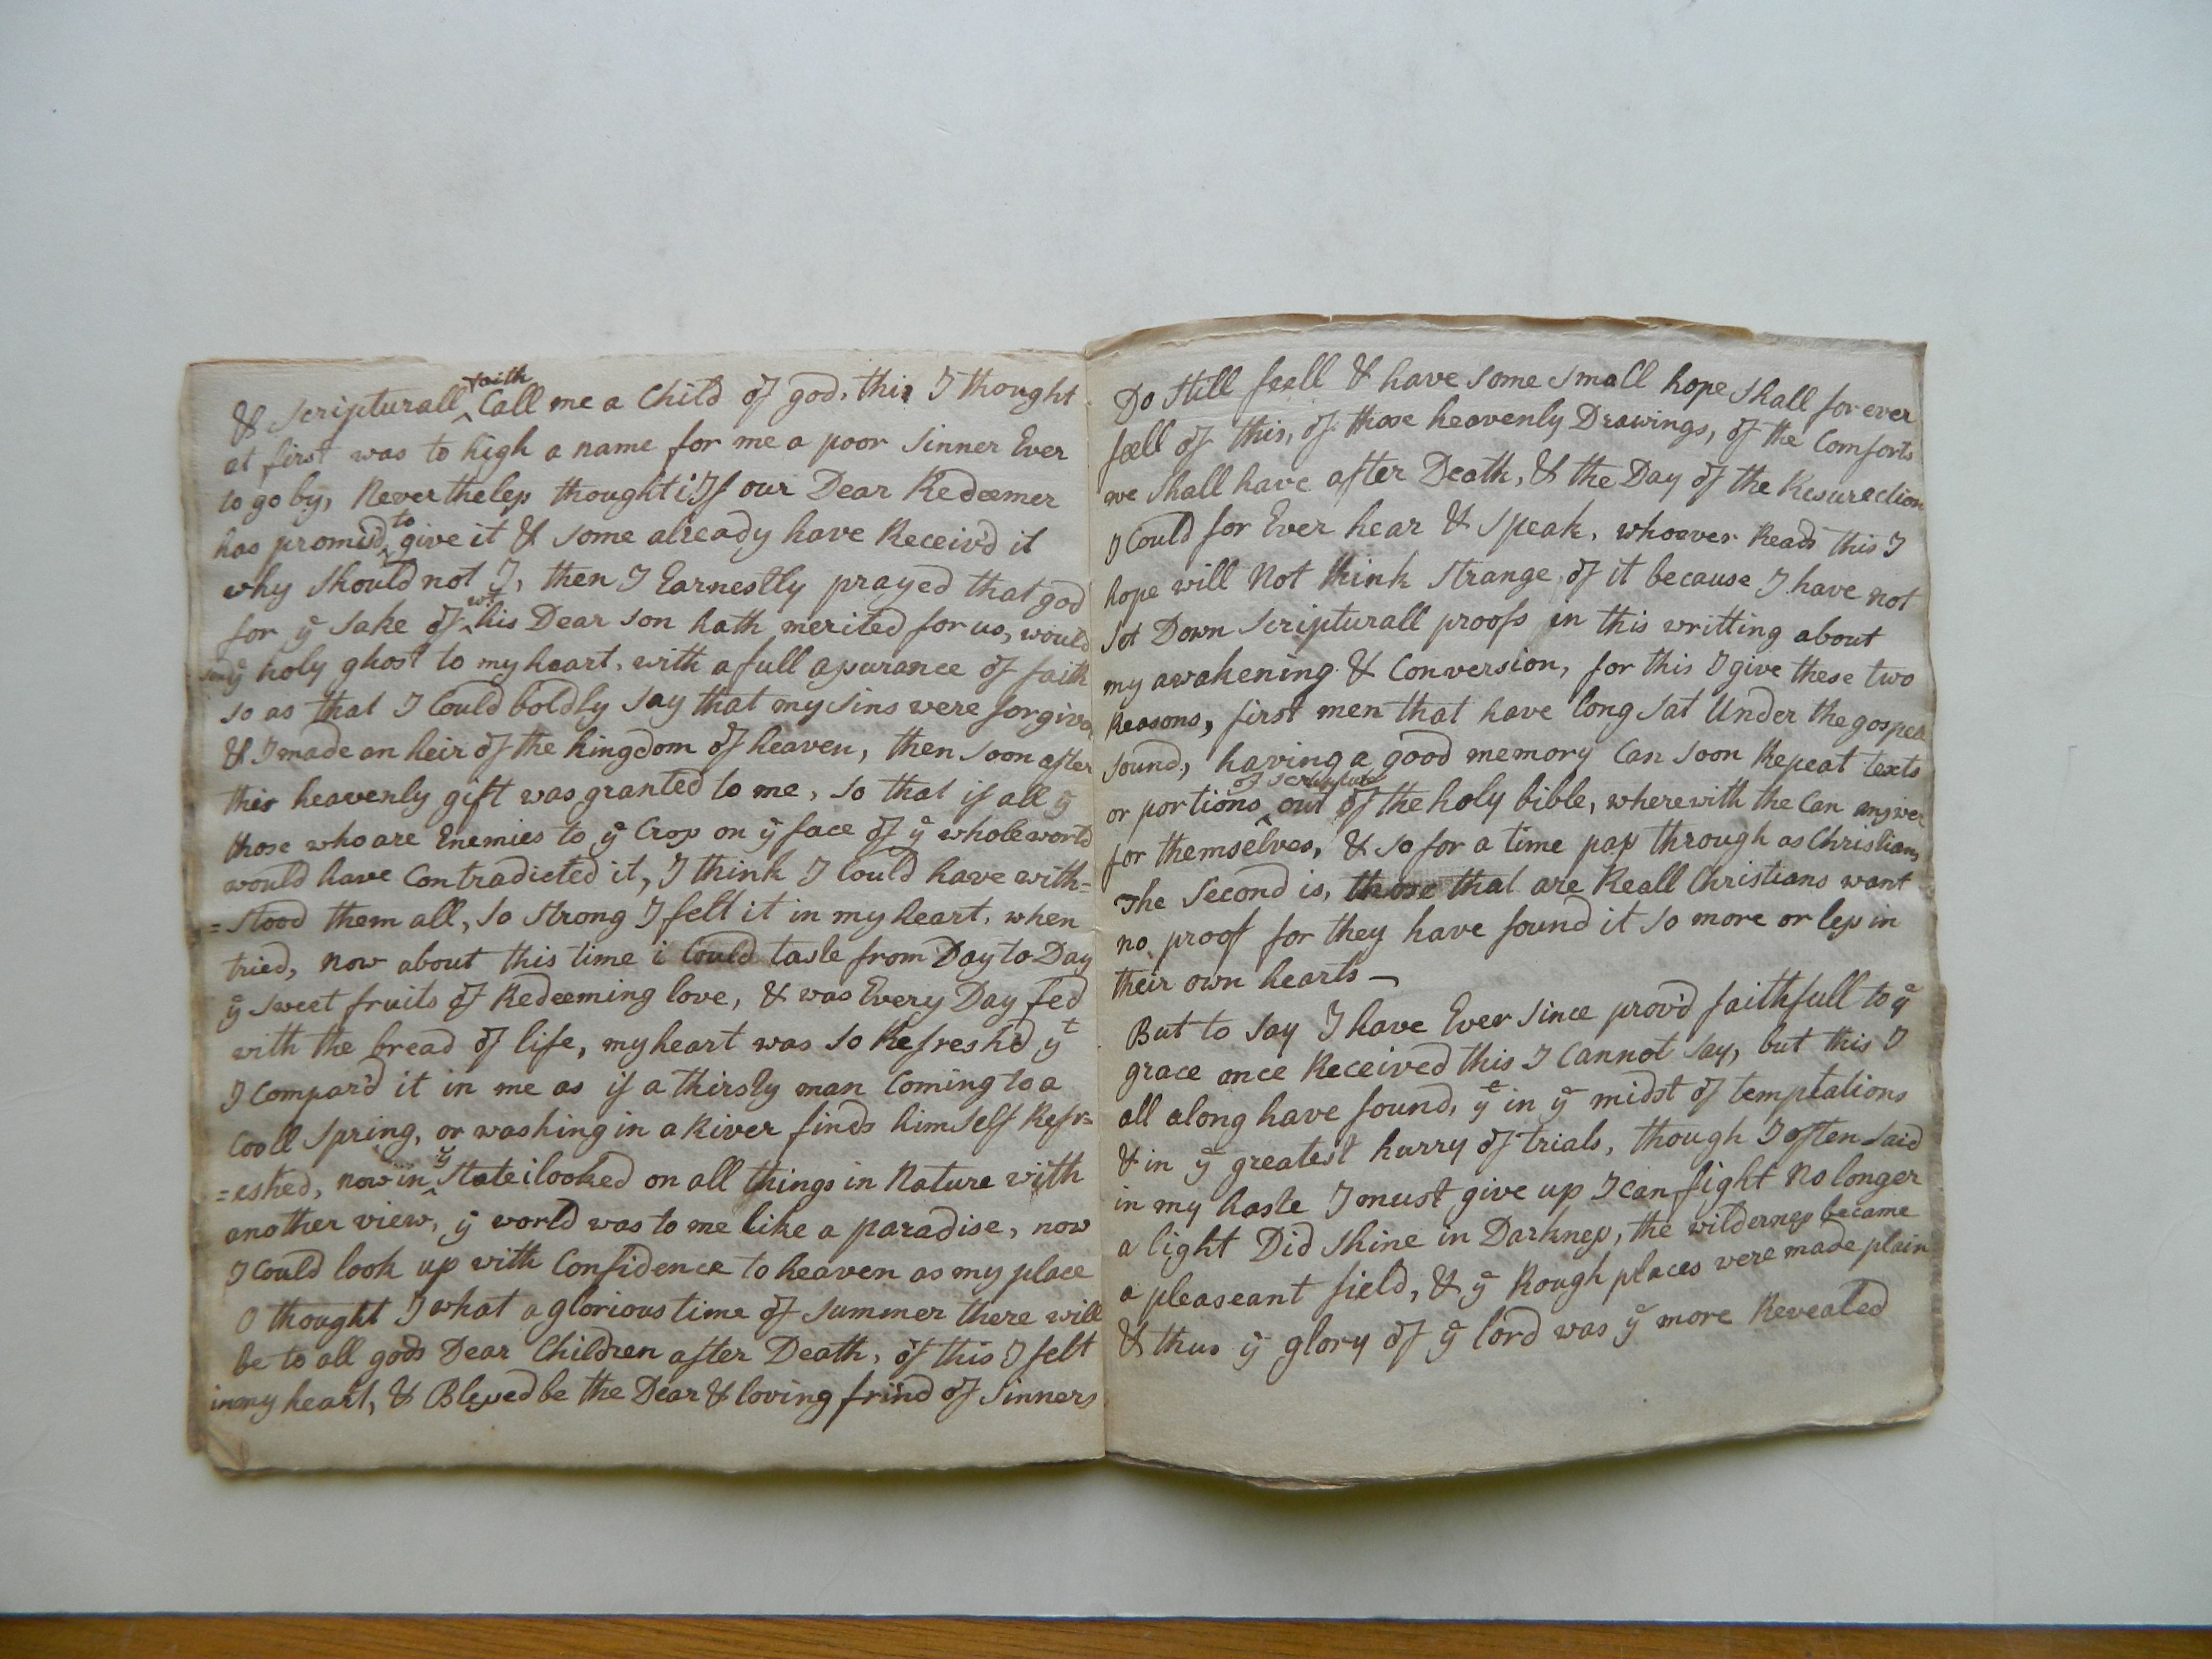 & Scripturall ^faith Call me a Child of god, this I thought
at first was to high a name for me a poor Sinner Ever
to go by, Nevertheless thought i If our Dear Redeemer
has promis'd ^to give it & some already have Receiv'd it
why Should not I, then I Earnestly prayed that god
for yͤ Sake of ^wt his Dear Son hath merited for us, would
send yͤ holy ghost to my heart, with a full assurance of faith
so as that I Could boldly Say that my Sins were forgiven
& I made an heir of the kingdom of heaven, then Soon after
this heavenly gift was granted to me, so that if all yͤ
those who are Enemies to yͤ Cross on yͤ face of yͤ whole world
would have Contradicted it, I think I Could have with=
=stood them all, So Strong I felt it in my heart, when
tried, now about this time i Could taste from Day to Day
yͤ Sweet fruits of Redeeming love, & was Every Day fed
with the bread of life, my heart was So Refresh'd yͭ
I Compar'd it in me as if a thirsty man Coming to a
Cooll Spring, or washing in a River finds himSelf Refr=
=eshed, now in ^yͤ State i looked on all things in Nature with
another view, yͤ world was to me like a paradise, now
I Could look up with Confidence to heaven as my place
O thought I what a glorious time of Summer there will
be to all gods Dear Children after Death, of this I felt
in my heart, & Blessed be the Dear & loving frind of Sinners
Do Still feell & have Some Small hope Shall for ever
feell of this, of those heavenly Drawings, of the Comforts
we Shall have after Death, & the Day of the Resurection
I Could for Ever hear & Speak, whoever Reads this I
hope will Not think Strange of it because I have not
Set Down Scripturall proofs in this writting about
my awakening & Conversion, for this I give these two
Reasons, first men that have long Sat Under the gospell
Sound, having a good memory Can Soon Repeat texts
or portions ^of scripture out of the holy bible, wherewith the Can answer
for themselves, & So for a time pass through as Christians
The Second is, those that are Reall Christians want
no proof for they have found it So more or less in
their own hearts —
But to Say I have Ever Since prov'd faithfull to yͤ
grace once Received this I Cannot Say, but this I
all along have found, yͭ in yͤ midst of temptations
& in yͤ greatest hurry of trials, though I often Said
in my haste I must give up I can fight No longer
a light Did Shine in Darkness, the wilderness became
a pleaseant field, & yͤ Rough places were made plain
& thus yͤ glory of yͤ lord was yͤ more Revealed